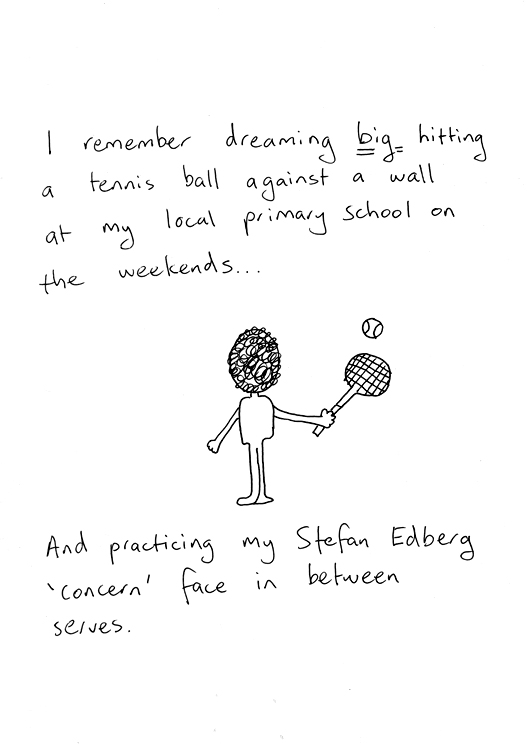 I remember dreaming big hitting
a tennis ball against a wall
at my local primary school on
the weekends...
And practicing my Stefan Edberg
'concern' face in between
serves.